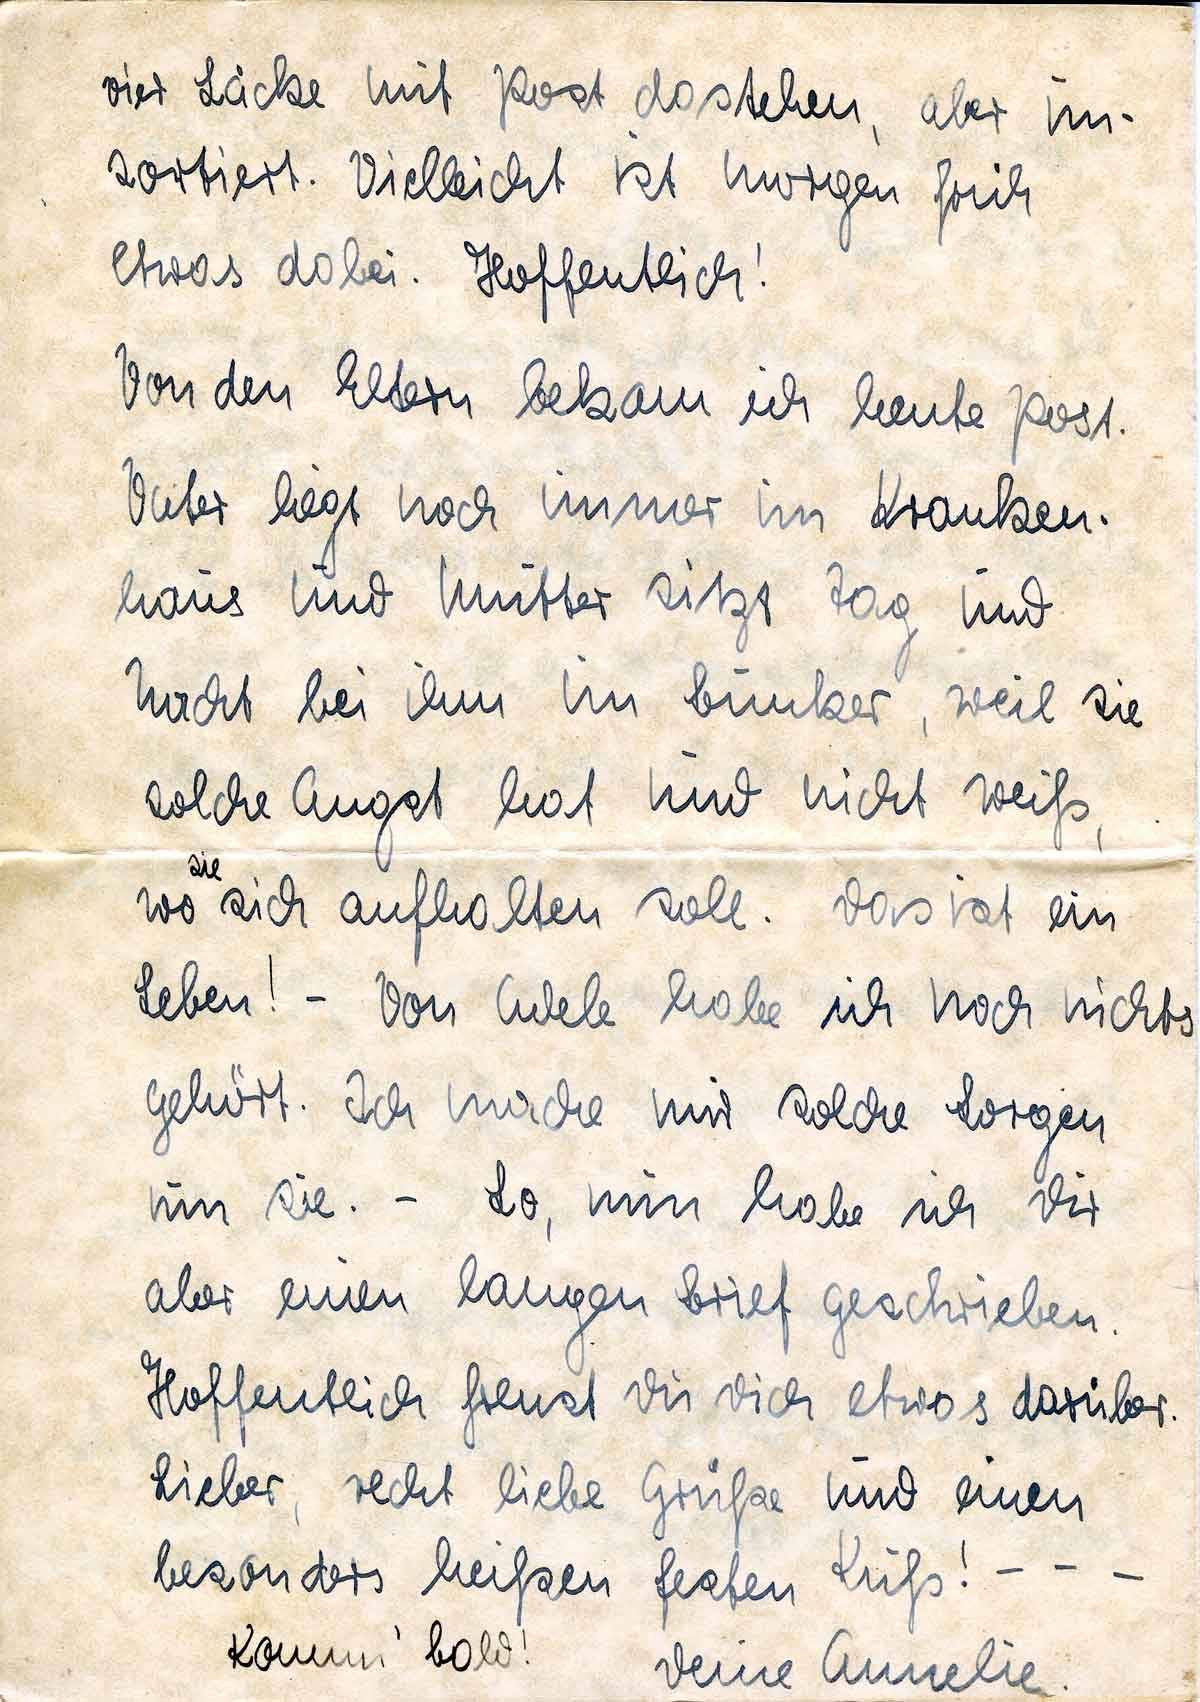 vier Säcke mit Post dastehen, aber un-
sortiert. Vielleicht ist morgen früh
etwas dabei. Hoffentlich!
Von den Eltern bekam ich heute Post.
Vater liegt noch immer im Kranken-
haus und Mutter sitzt Tag und
Nacht bei ihm im Bunker, weil sie
solche Angst hat und nicht weiß,
wo sie sich aufhalten soll. Das ist ein
Leben! - Von Adele habe ich noch nichts
gehört. Ich mache mir solche Sorgen
um sie. - So, nun habe ich Dir
aber einen langen Brief geschrieben.
Hoffentlich freust Du Dich etwas darüber.
Lieber, recht liebe Grüße und einen
besonders heißen festen Kuß! - - -
Komm' bald! Deine Annelie.